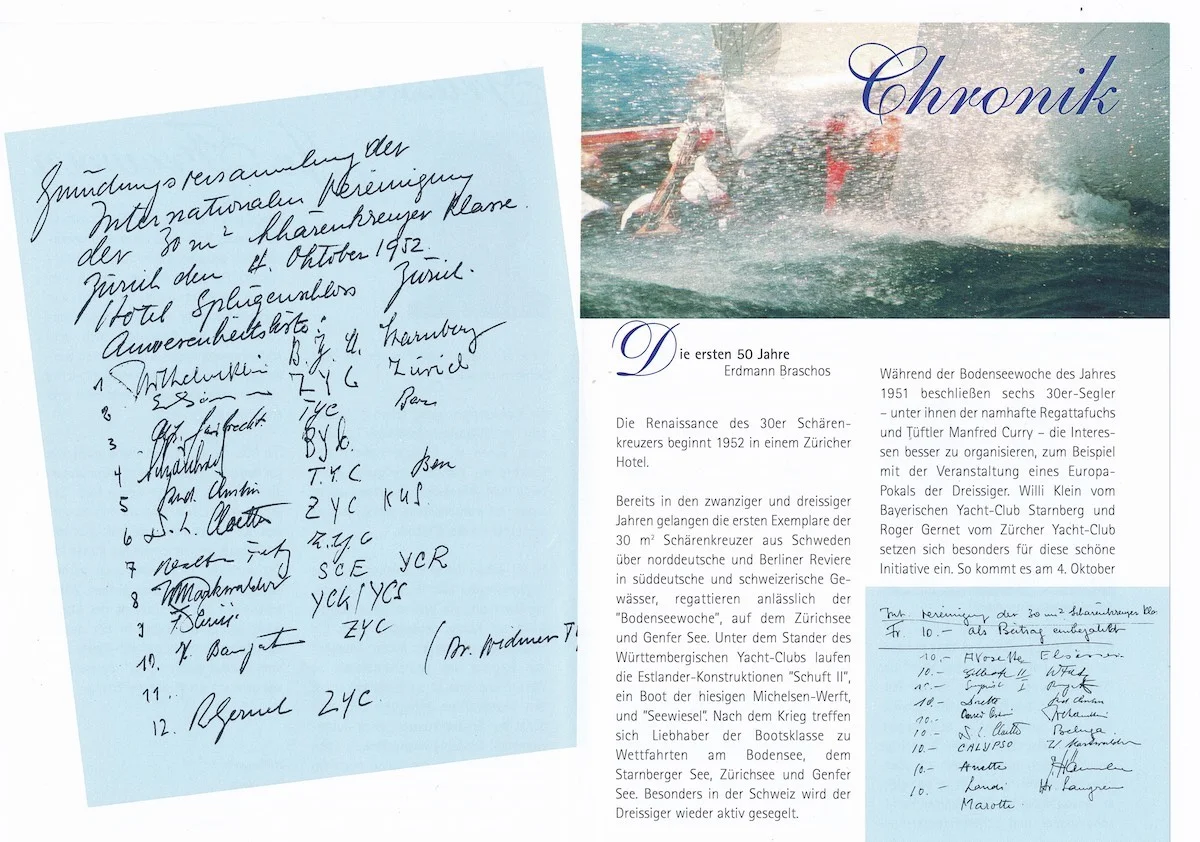 Gründungsversammlung der
Internationalen Vereinigung
der 30 m² Schärenkreuzer Klasse.
Zürich den 4. Oktober 1952.
Hotel Splügenschloss Zürich.
Anwesenheitsliste:
1 Wilhelm Klein B.Y.C. Starnberg
2 ZYC Zürich
3 TYC
4 BYC.
5 T.Y.C
6 D. L. Cloetta ZYC KUS.
7 Z.Y.C
8 SCE YCR
9 YCK/YCS
10. ZYC (Dr. Widmer
11.
12. RGernet ZYC.
Chronik
Die ersten 50 Jahre
Erdmann Braschos
Die Renaissance des 30er Schären-
kreuzers beginnt 1952 in einem Züricher
Hotel.
Bereits in den zwanziger und dreissiger
Jahren gelangen die ersten Exemplare der
30 m² Schärenkreuzer aus Schweden
über norddeutsche und Berliner Reviere
in süddeutsche und schweizerische Ge-
wässer, regattieren anlässlich der
"Bodenseewoche", auf dem Zürichsee
und Genfer See. Unter dem Stander des
Württembergischen Yacht-Clubs laufen
die Estlander-Konstruktionen "Schuft II",
ein Boot der hiesigen Michelsen-Werft,
und "Seewiesel". Nach dem Krieg treffen
sich Liebhaber der Bootsklasse zu
Wettfahrten am Bodensee, dem
Starnberger See, Zürichsee und Genfer
See. Besonders in der Schweiz wird der
Dreissiger wieder aktiv gesegelt.
Während der Bodenseewoche des Jahres
1951 beschließen sechs 30er-Segler
– unter ihnen der namhafte Regattafuchs
und Tüftler Manfred Curry – die Interes-
sen besser zu organisieren, zum Beispiel
mit der Veranstaltung eines Europa-
Pokals der Dreissiger. Willi Klein vom
Bayerischen Yacht-Club Starnberg und
Roger Gernet vom Zürcher Yacht-Club
setzen sich besonders für diese schöne
Initiative ein. So kommt es am 4. Oktober
Int. Vereinigung der 30 m² Schärenkreuzer Kla
Fr. 10.– als Beitrag einbezahlt
10.– Avosette
10.–
10.–
10.–
10.–
10.– D. L. Cloetta
10.– CALYPSO
10.– Anette
10.–
Marotte